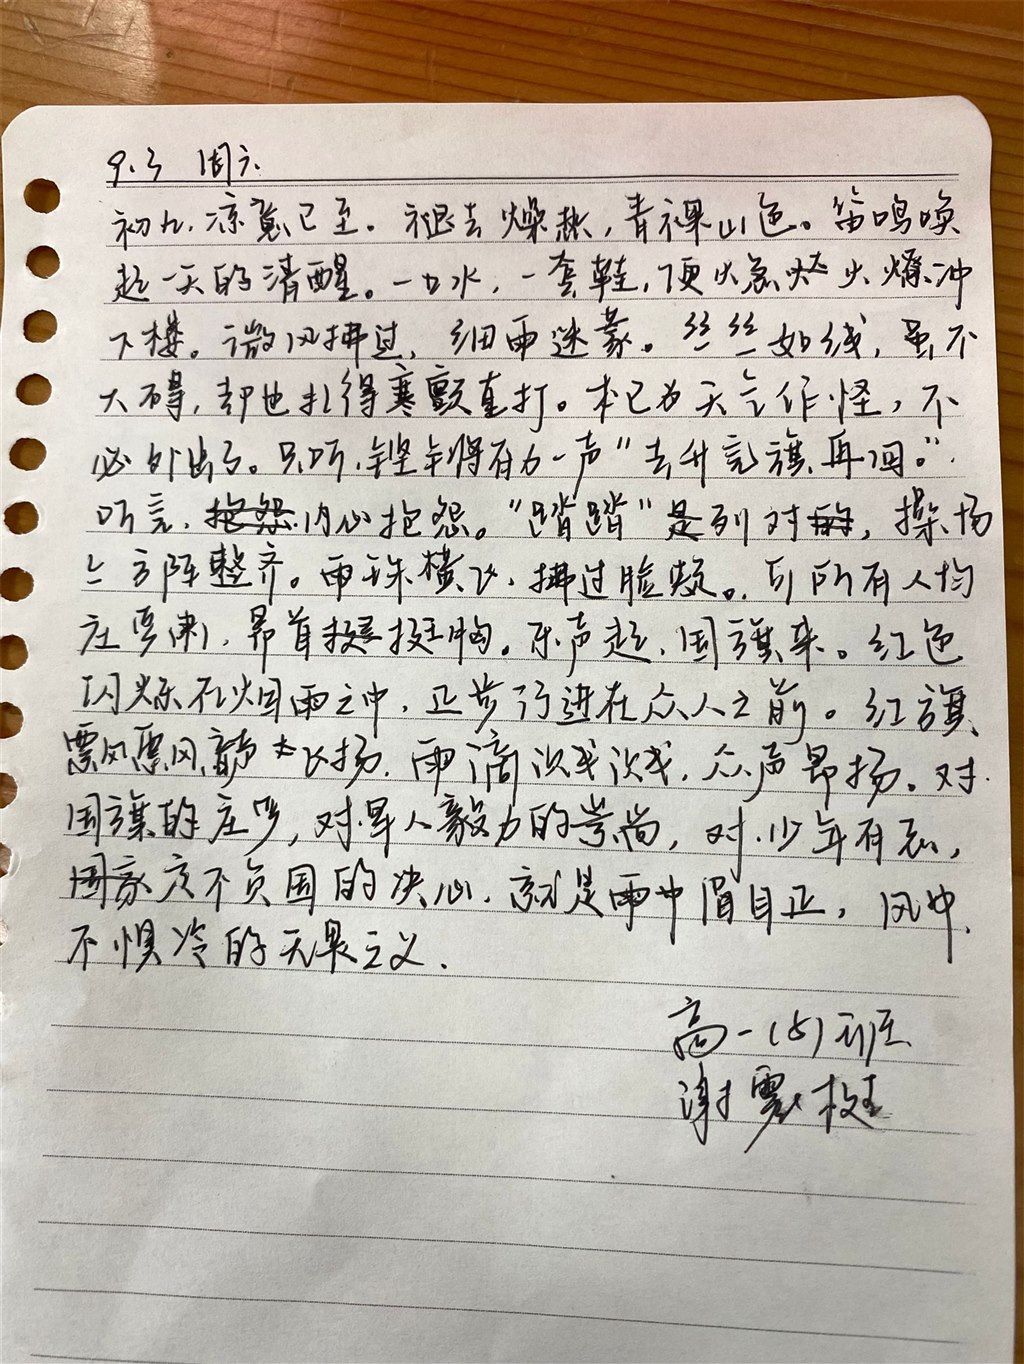 9.3 周六
初九,凉意已至。褪去燥热,青裸山色。笛鸣唤
起一天的清醒。一口水,一套鞋,便火急火燎冲
下楼。微风拂过,细雨迷蒙。丝丝如线,虽不
大碍,却也扎得寒颤直打。本已为天气作怪,不
必外出了。只听,铿锵有力一声“去升完旗再回。”
听言,内心抱怨。“踏踏”是列对,操场
上方阵整齐。雨珠横飞,拂过脸颊。可所有人均
庄严肃,昂首挺胸。乐声起,国旗来。红色
闪烁在烟雨之中,正步行进在众人之前。红旗
飘飘飞扬,雨滴淅淅,众声昂扬。对
国旗的庄严,对军人毅力的崇尚,对少年有志,
国家定不负国的决心,就是雨中眉目正,风中
不惧冷的无畏之义.
高一(5)班
谢震